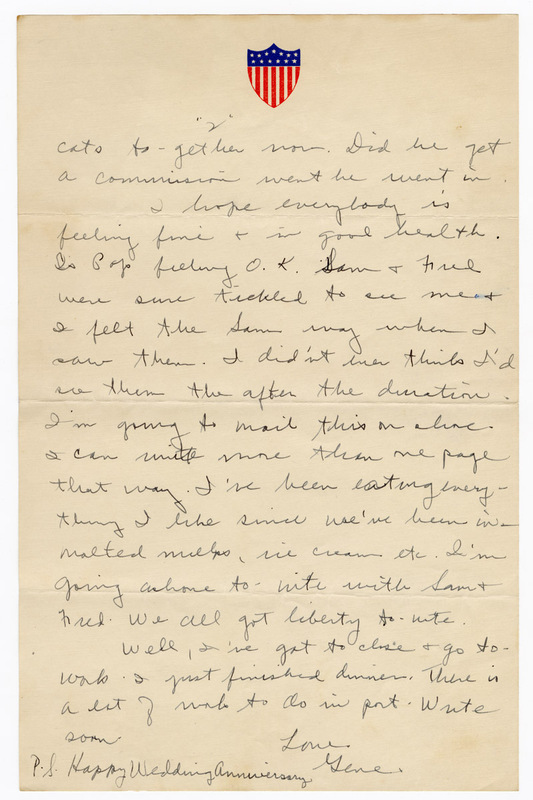 "2"
cats to-gether now. Did he get
a commission went he went in.
I hope everybody is
feeling fine & in good health.
Is Pop feeling O.K. Sam & Fred
were sure tickled to see me &
I felt the Sam way when I
saw them. I did'nt ever think I'd
see them the after the duration.
I'm going to mail this on shore.
I can write more than one page
that way. I've been eating every-
thing I like since we've been in-
malted milks, ice cream etc. I'm
going ashore to-nite with Sam &
Fred. We all got liberty to-nite.
Well, I've got to close & go to-
work. I just finished dinner. There is
a lot of work to do in port. Write
soon.
Love
Gene.
P.S. Happy Wedding Anniversary